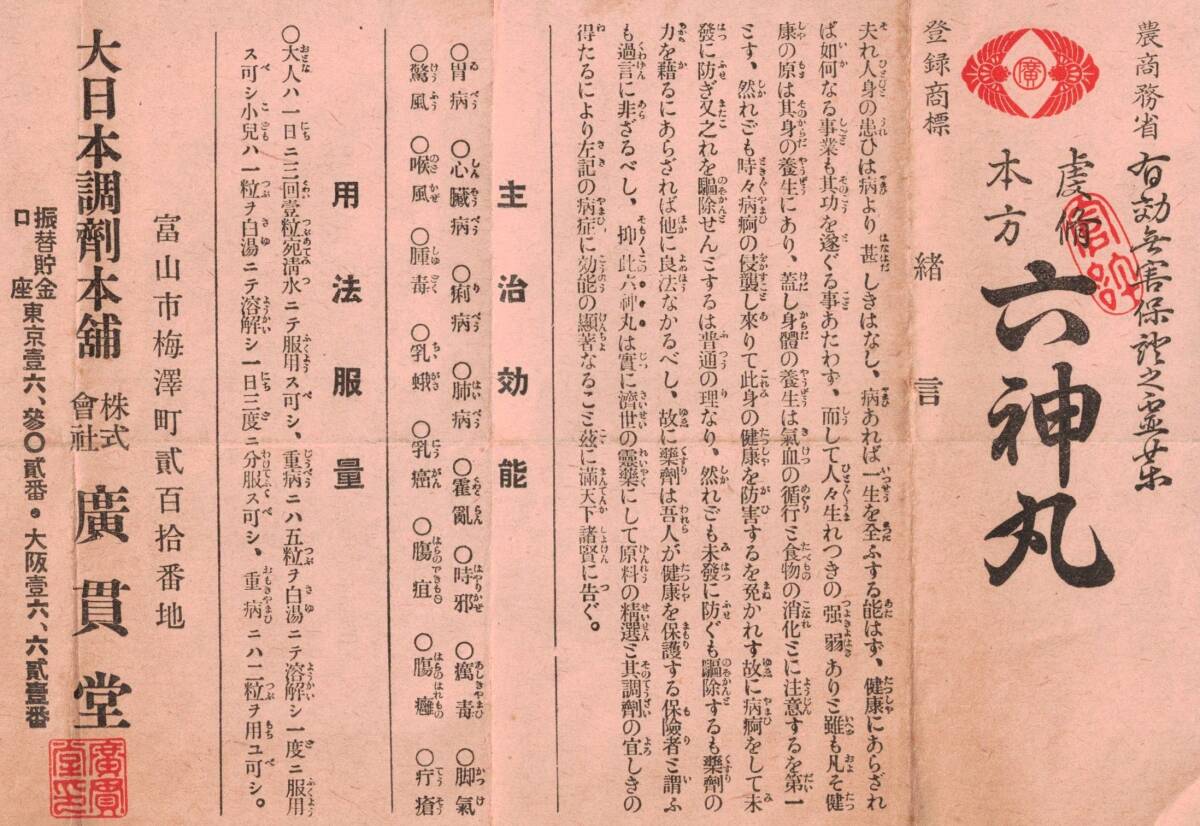 農商務省有効無害保證之霊薬
登録商標
廣
虔脩
本方
六神丸
官許
緒言
夫れ人身の患ひは病より甚しきはなし、病あれば一生を全ふする能はず、健康にあらざれ
ば如何なる事業も其功を遂ぐる事あたわず、而して人々生れつきの强弱ありと雖も凡そ健
康の原は其身の養生にあり、蓋し身體の養生は氣血の循行と食物の消化とに注意するを第一
とす、然れども時々病痾の侵襲し來りて此身の健康を防害するを免かれす故に病痾をして未
發に防ぎ又之れを驅除せんとするは普通の理なり、然れども未發に防ぐも驅除するも藥劑の
力を藉るにあらざれば他に良法なかるべし、故に藥劑は吾人が健康を保護する保險者と謂ふ
も過言に非ざるべし、抑此六神丸は實に濟世の靈藥にして原料の精選と其調劑の宜しきの
得たるにより左記の病症に効能の顯著なること茲に滿天下諸賢に告ぐ。
主治効能
○胃病 ○心臟病 ○痢病 ○肺病 ○霍亂 ○時邪 ○癘毒 ○脚氣
○驚風 ○喉風 ○腫毒 ○乳蛾 ○乳癌 ○膓疽 ○膓癰 ○疔瘡
用法服量
○大人ハ一日ニ三回壹粒宛淸水ニテ服用ス可シ、重病ニハ五粒ヲ白湯ニテ溶解シ一度ニ服用
ス可シ小兒ハ一粒ヲ白湯ニテ溶解シ一日三度ニ分服ス可シ、重病ニハ二粒ヲ用ユ可シ。
富山市梅澤町貳百拾番地
大日本調劑本舖 株式會社 廣貫堂
廣貫堂印
振替貯金口座 東京壹六、參〇貳番。大阪壹六、六貳壹番